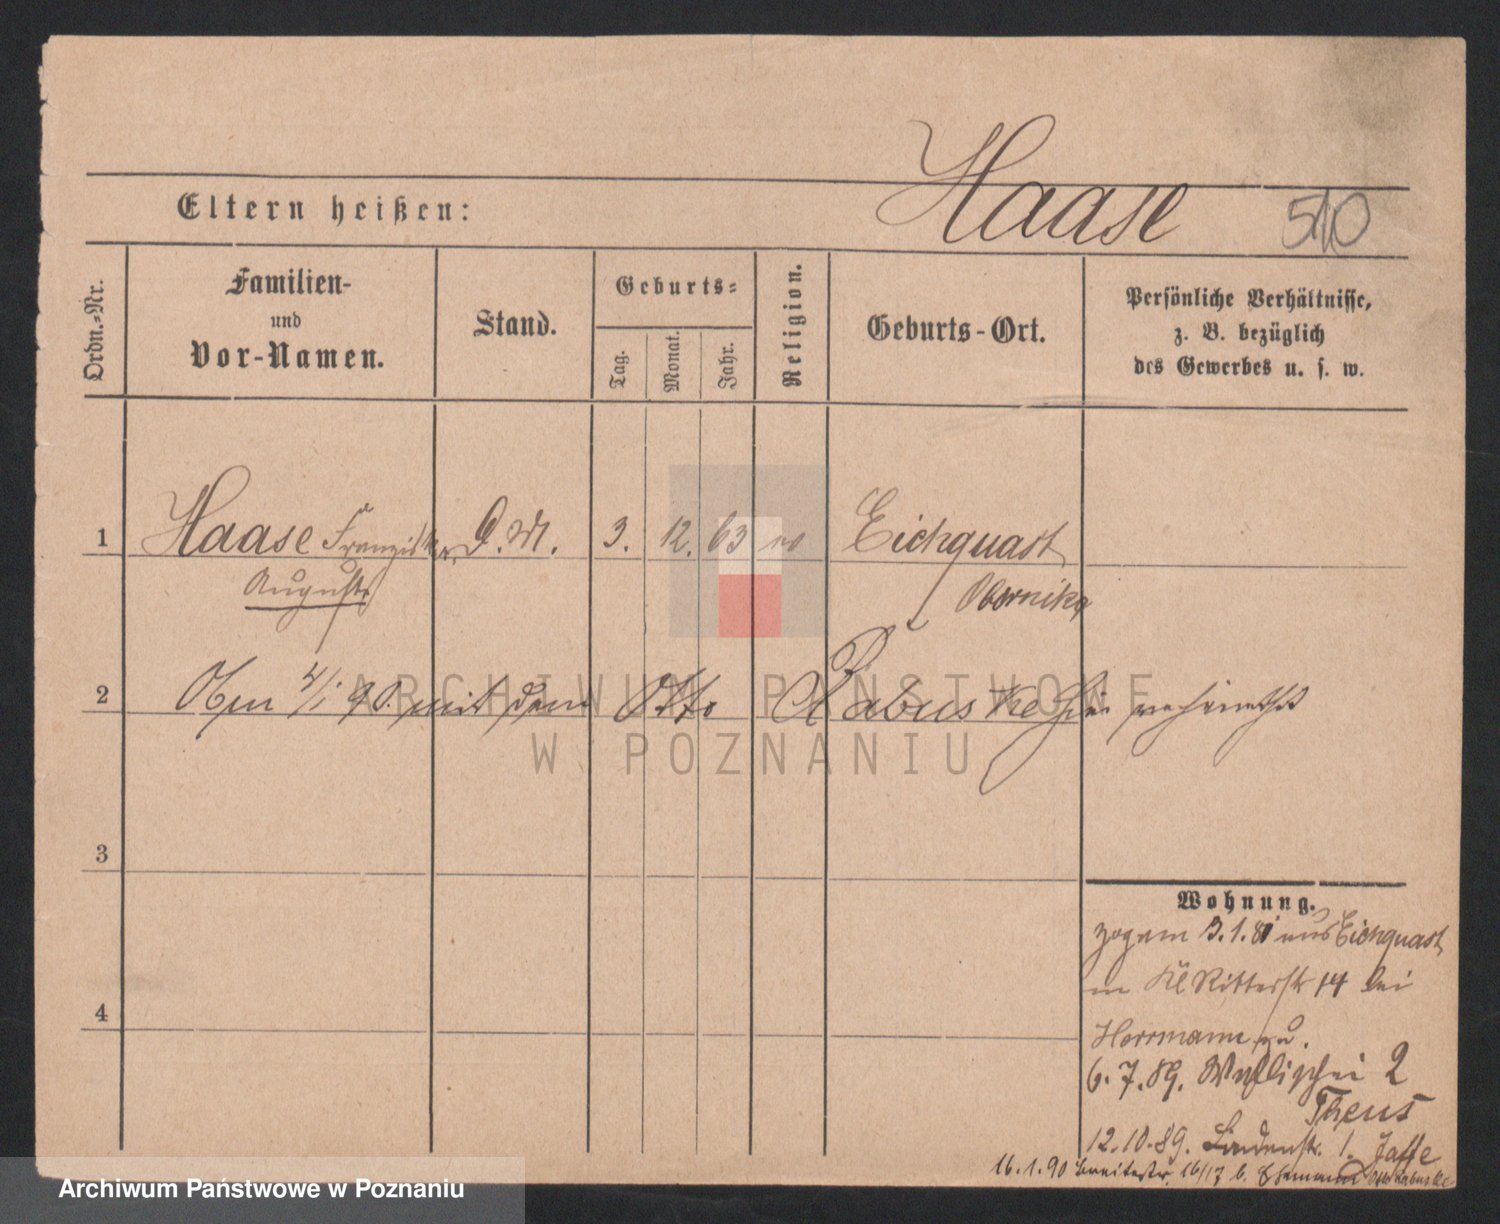 Haase 510
Eltern heißen:
Ordn.-Nr.
Familien-
und
Vor-Namen.
Stand.
Geburts-
Tag.
Monat.
Jahr.
Religion.
Geburts-Ort.
Persönliche Verhältnisse,
z. B. bezüglich
des Gewerbes u. s. w.
1 Haase Franziska D. M. 3. 12. 63 ev Eichquast
Auguste Obornik
2 Am 4/1 90. mit dem Otto Rabuske hier verheirathet
ARCHIWUM PAŃSTWOWE
W POZNANIU
3
4
Wohnung.
zog am 3.1. aus Eichquast
Kl Ritterstr 14 bei
Herrmann zu.
6.7.89. 2
Theus
12.10.89. Lindenstr. 1. Jaffe
16.1.90 Breitestr. 16/17 b. Ehemann Otto Rabuske
Archiwum Państwowe w Poznaniu